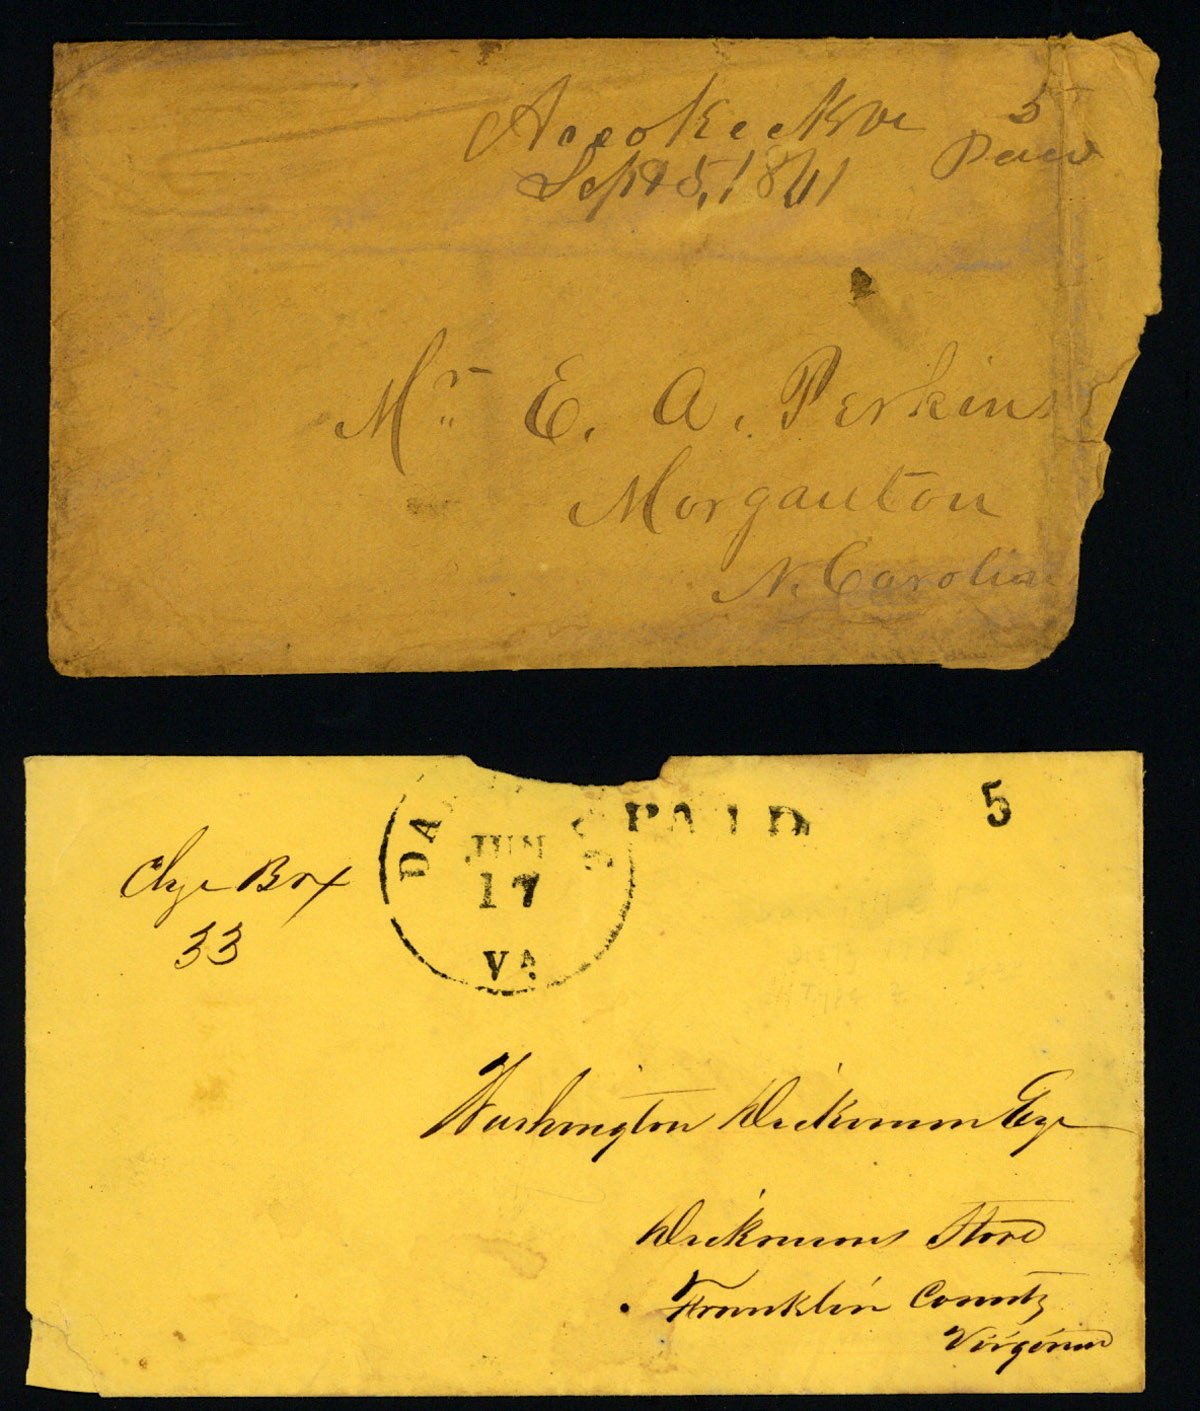 Accokeek Va
Sept 5, 1861
5
Paid
Mr. E. A. Perkins
Morganton
N. Carolina
DA
JUN
17
VA
PAID
5
Chge Box
33
Washington Dickinson Esqr
Dickinsons Store
Franklin County
Virginia